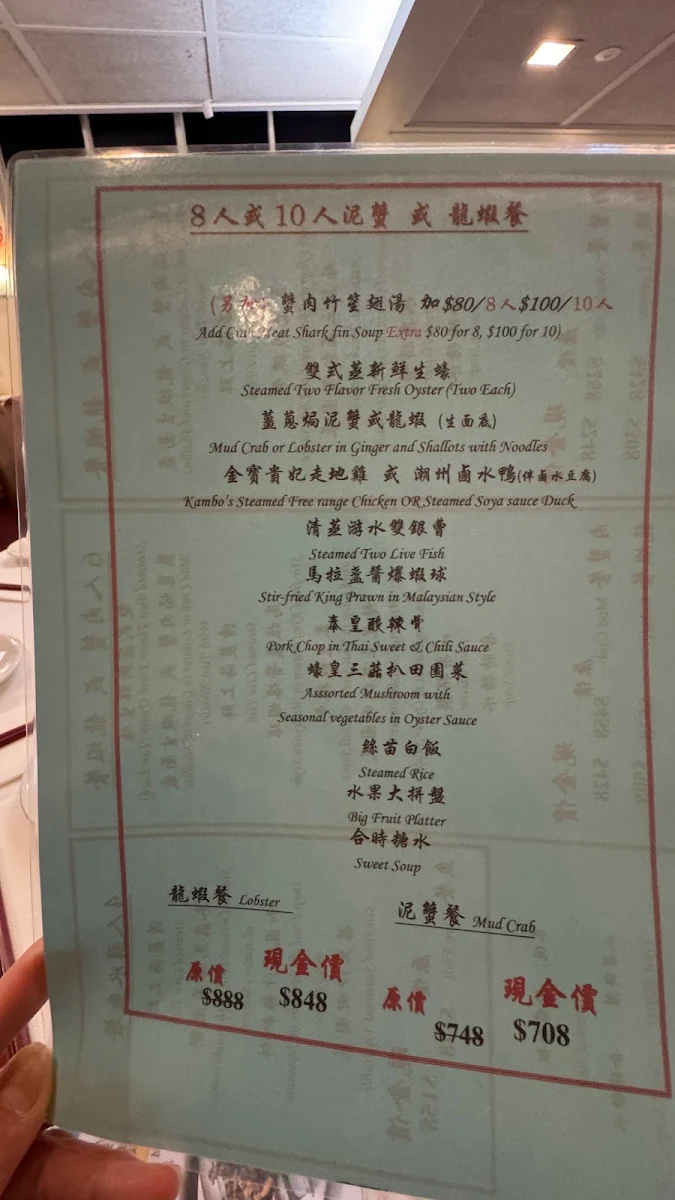 8人或10人泥蟹 或 龍蝦餐
(另加) 蟹肉竹笙翅湯 加$80/8人$100/10人
Add Crab Meat Shark fin Soup Extra $80 for 8, $100 for 10)
雙式蒸新鮮生蠔
Steamed Two Flavor Fresh Oyster (Two Each)
薑蔥焗泥蟹或龍蝦 (生面底)
Mud Crab or Lobster in Ginger and Shallots with Noodles
金寶貴妃走地雞 或 潮州鹵水鴨(伴鹵水豆腐)
Kambo's Steamed Free range Chicken OR Steamed Soya sauce Duck
清蒸游水雙銀曹
Steamed Two Live Fish
馬拉盞醬爆蝦球
Stir-fried King Prawn in Malaysian Style
泰皇酸辣骨
Pork Chop in Thai Sweet & Chili Sauce
蠔皇三菇扒田園菜
Asssorted Mushroom with
Seasonal vegetables in Oyster Sauce
絲苗白飯
Steamed Rice
水果大拼盤
Big Fruit Platter
合時糖水
Sweet Soup
龍蝦餐 Lobster
泥蟹餐 Mud Crab
原價 現金價
$888 $848
原價 現金價
$748 $708